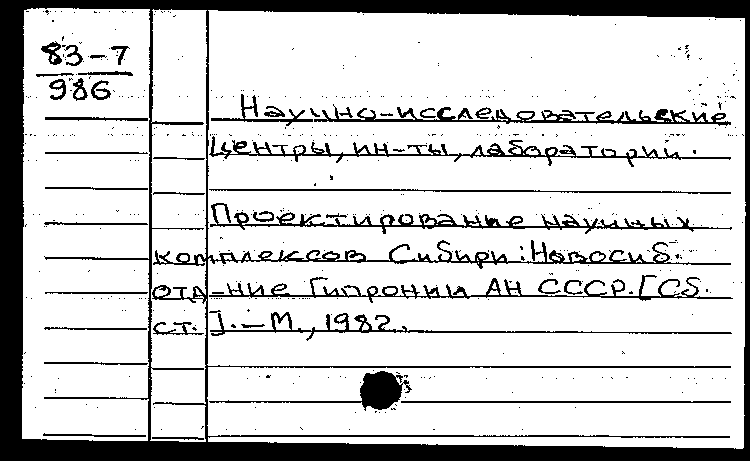 83-7
986
Научно-исследовательские
центры, ин-ты, лаборатории.
Проектирование научных
комплексов Сибири: Новосиб.
отд-ние Гипронии АН СССР. [Сб.
ст.]. - М., 1982.